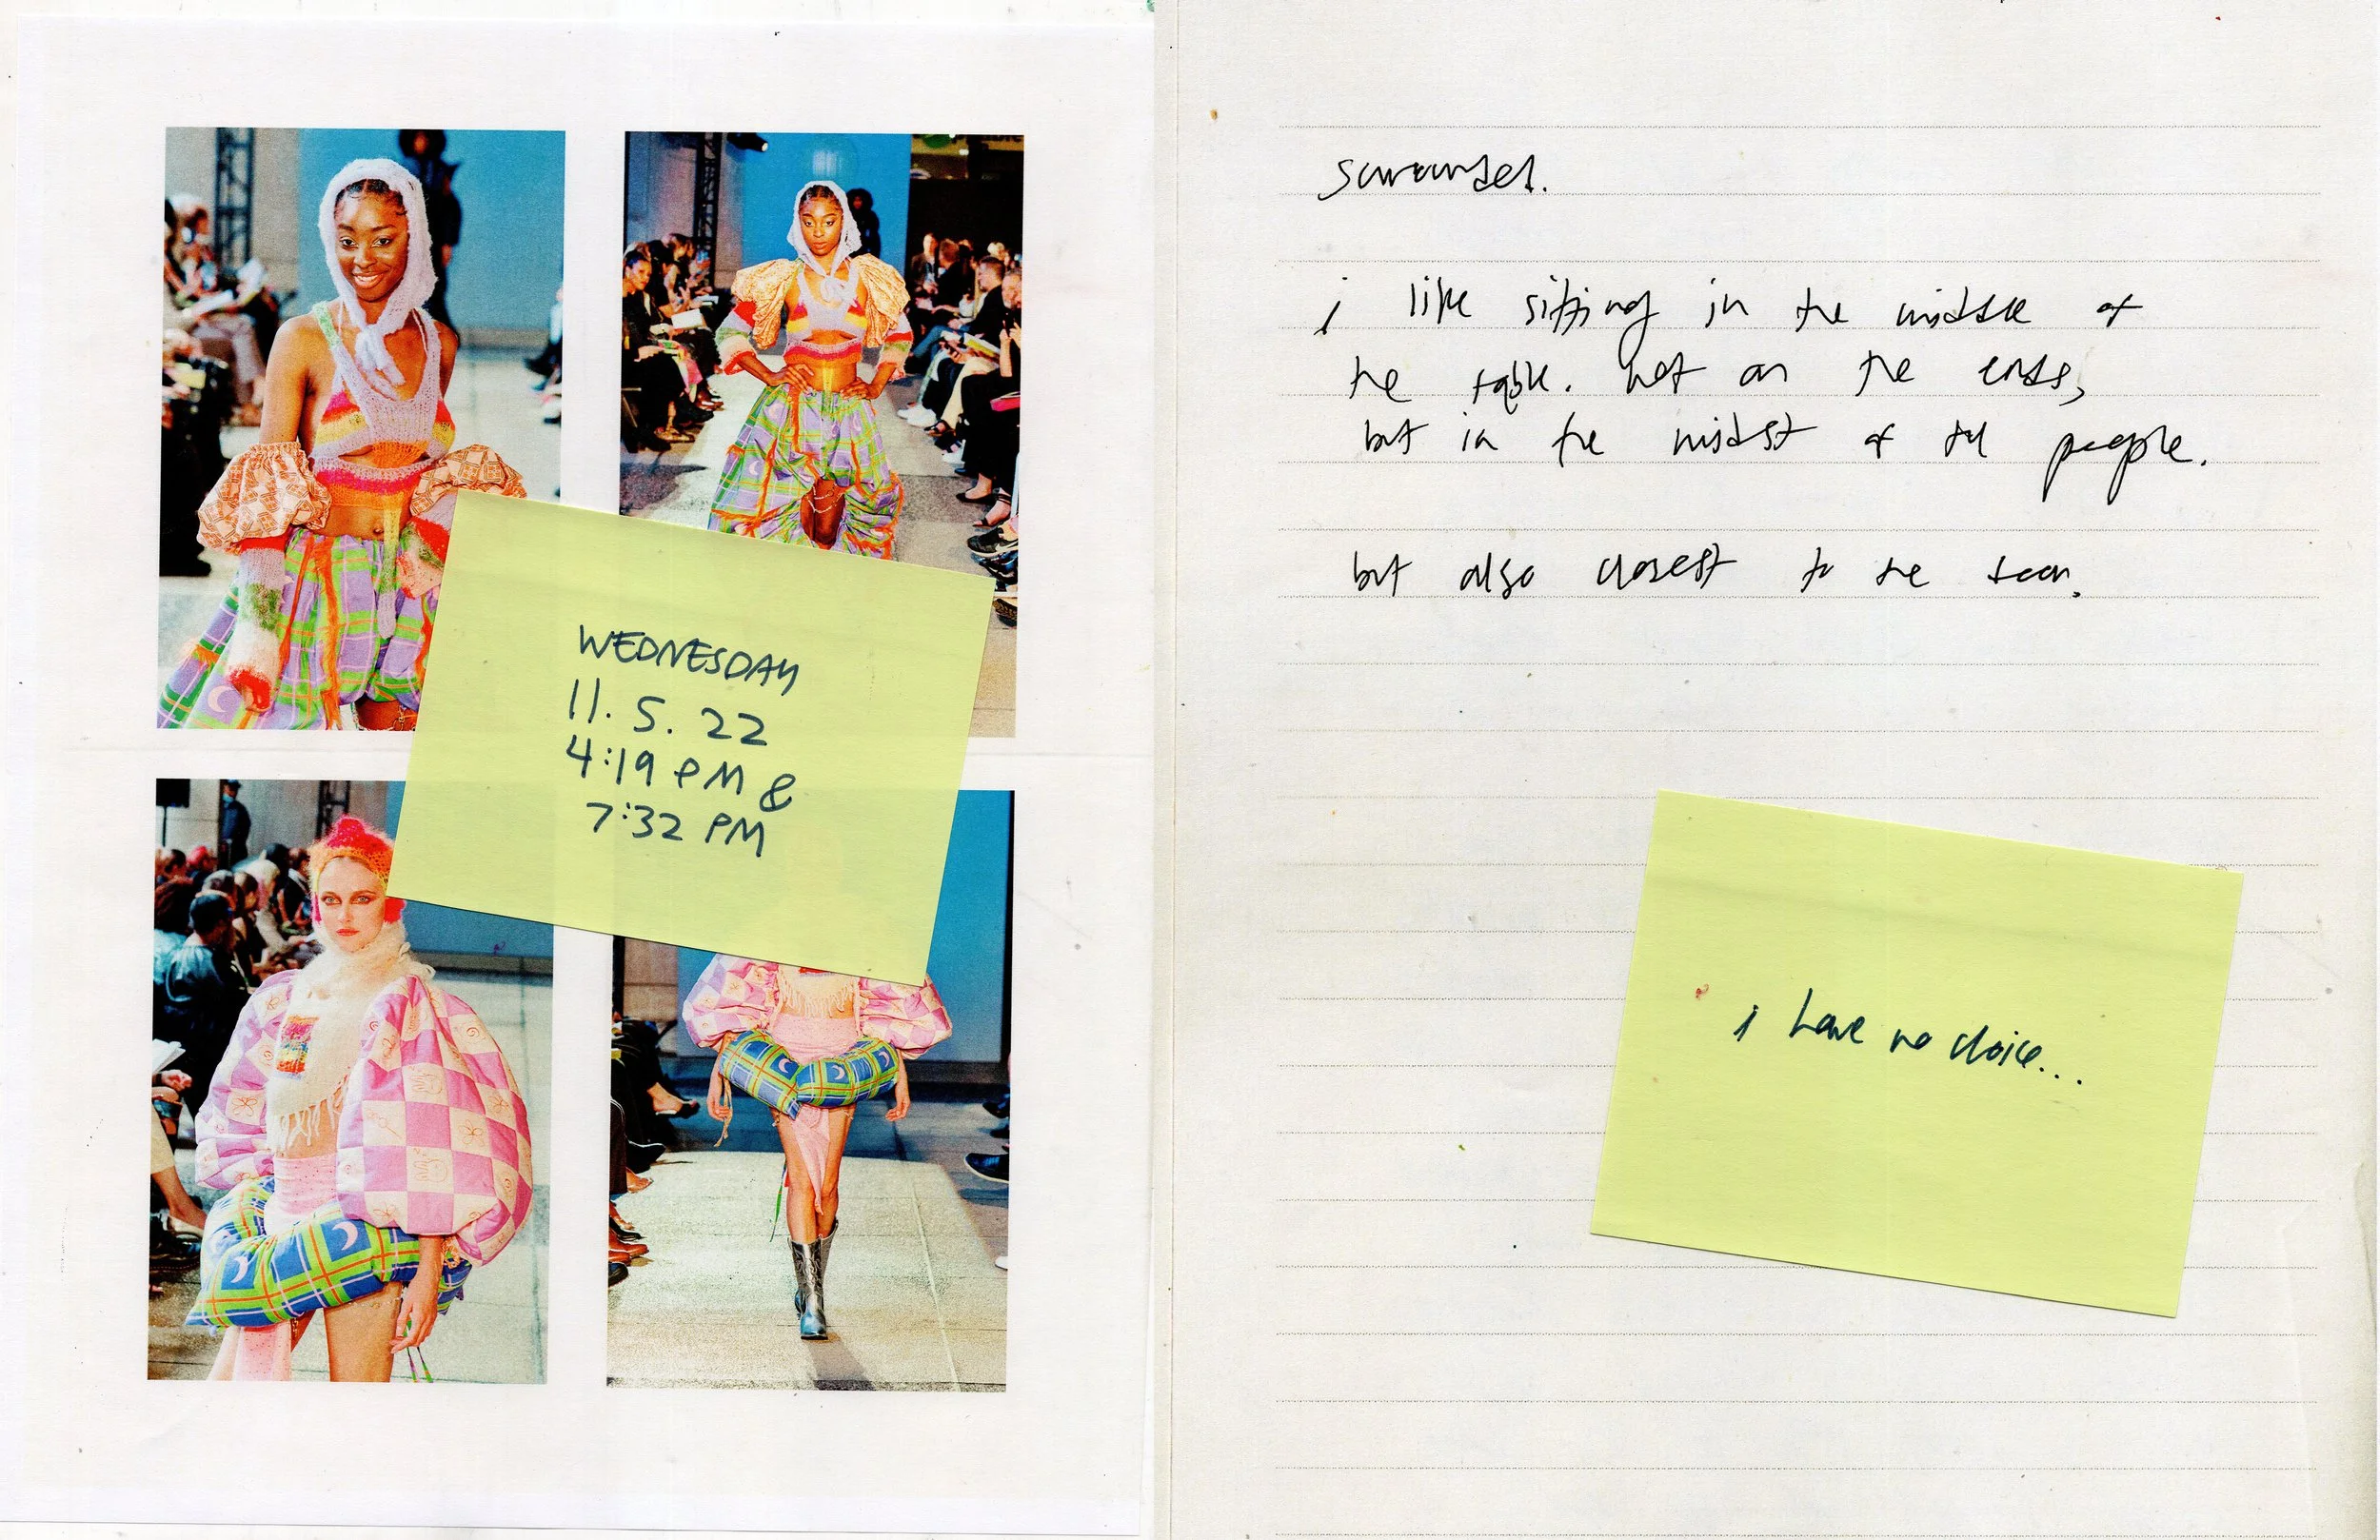 WEDNESDAY
11. 5. 22
4:19 PM &
7:32 PM
surrounded.
i like sitting in the middle of
the table. not on the ends,
but in the midst of the people.
but also closest to the door.
i have no choice...